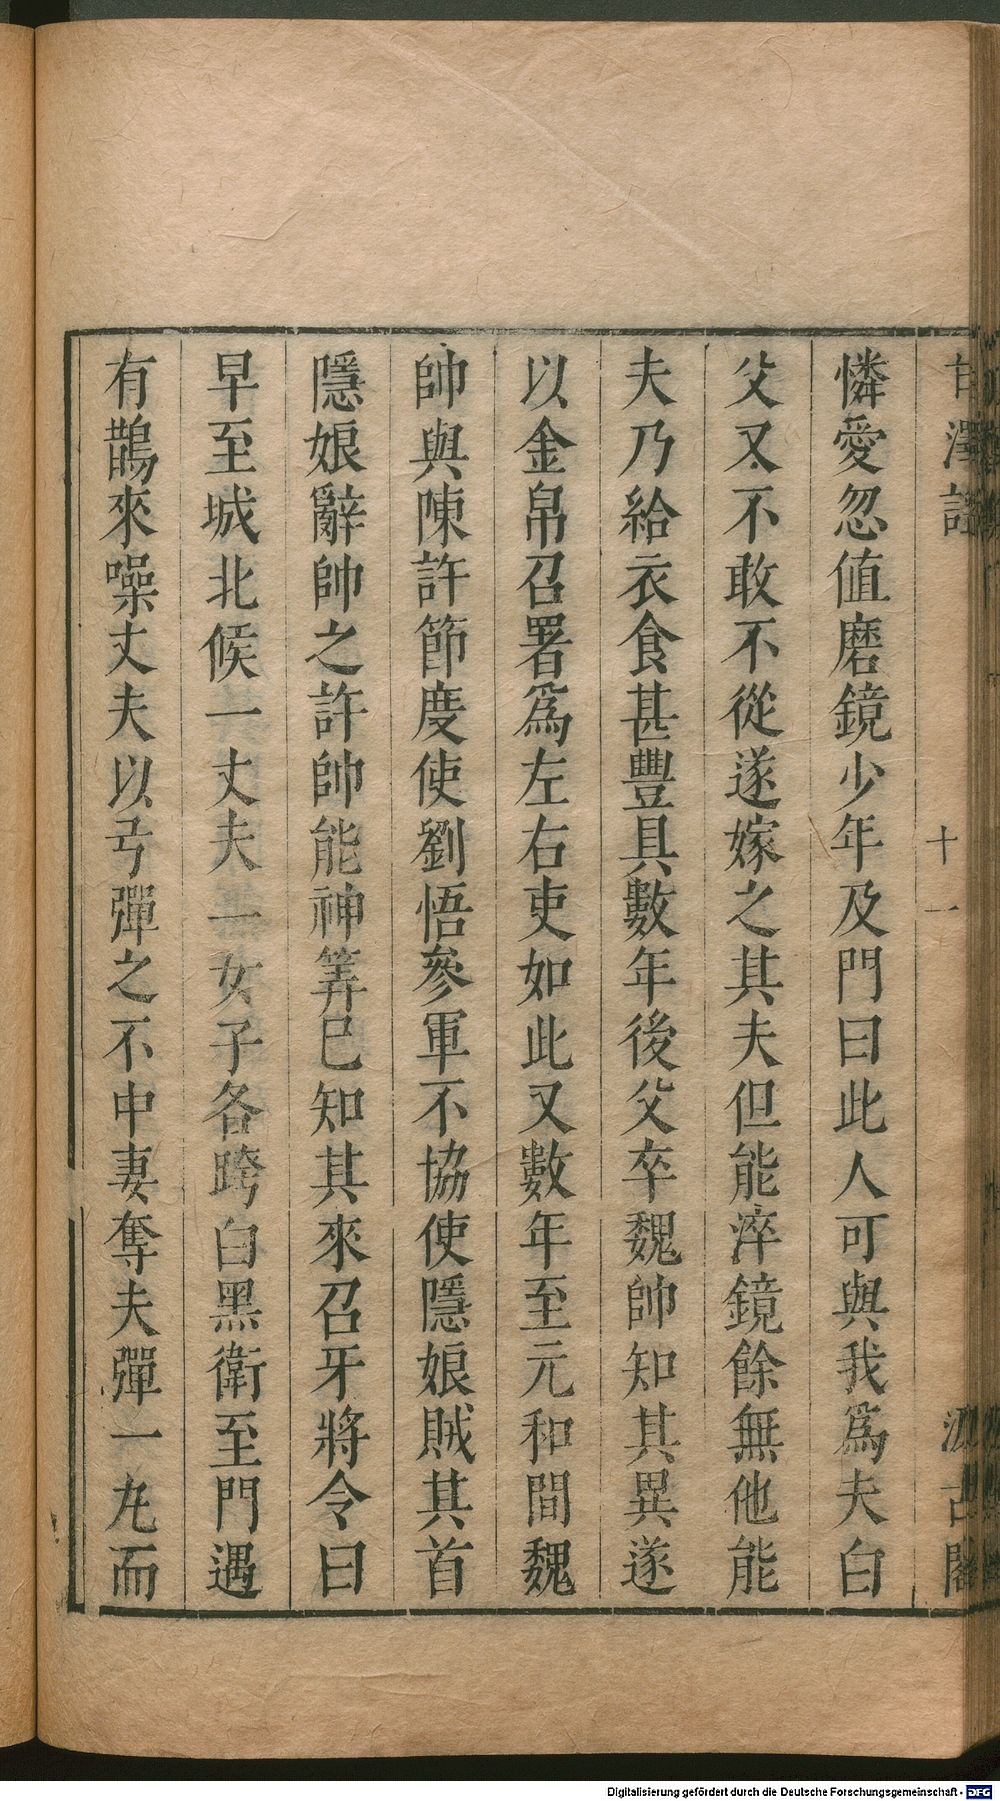 甘澤謠
十一
汲古閣
憐愛忽值磨鏡少年及門曰此人可與我爲夫白
父又不敢不從遂嫁之其夫但能淬鏡餘無他能
夫乃給衣食甚豐具數年後父卒魏帥知其異遂
以金帛召署爲左右吏如此又數年至元和間魏
帥與陳許節度使劉悟參軍不協使隱娘賊其首
隱娘辭帥之許帥能神筭巳知其來召牙將令曰
早至城北候一丈夫一女子各跨白黑衛至門遇
有鵲來噪丈夫以弓彈之不中妻奪夫彈一丸而
Digitalisierung gefördert durch die Deutsche Forschungsgemeinschaft - DFG